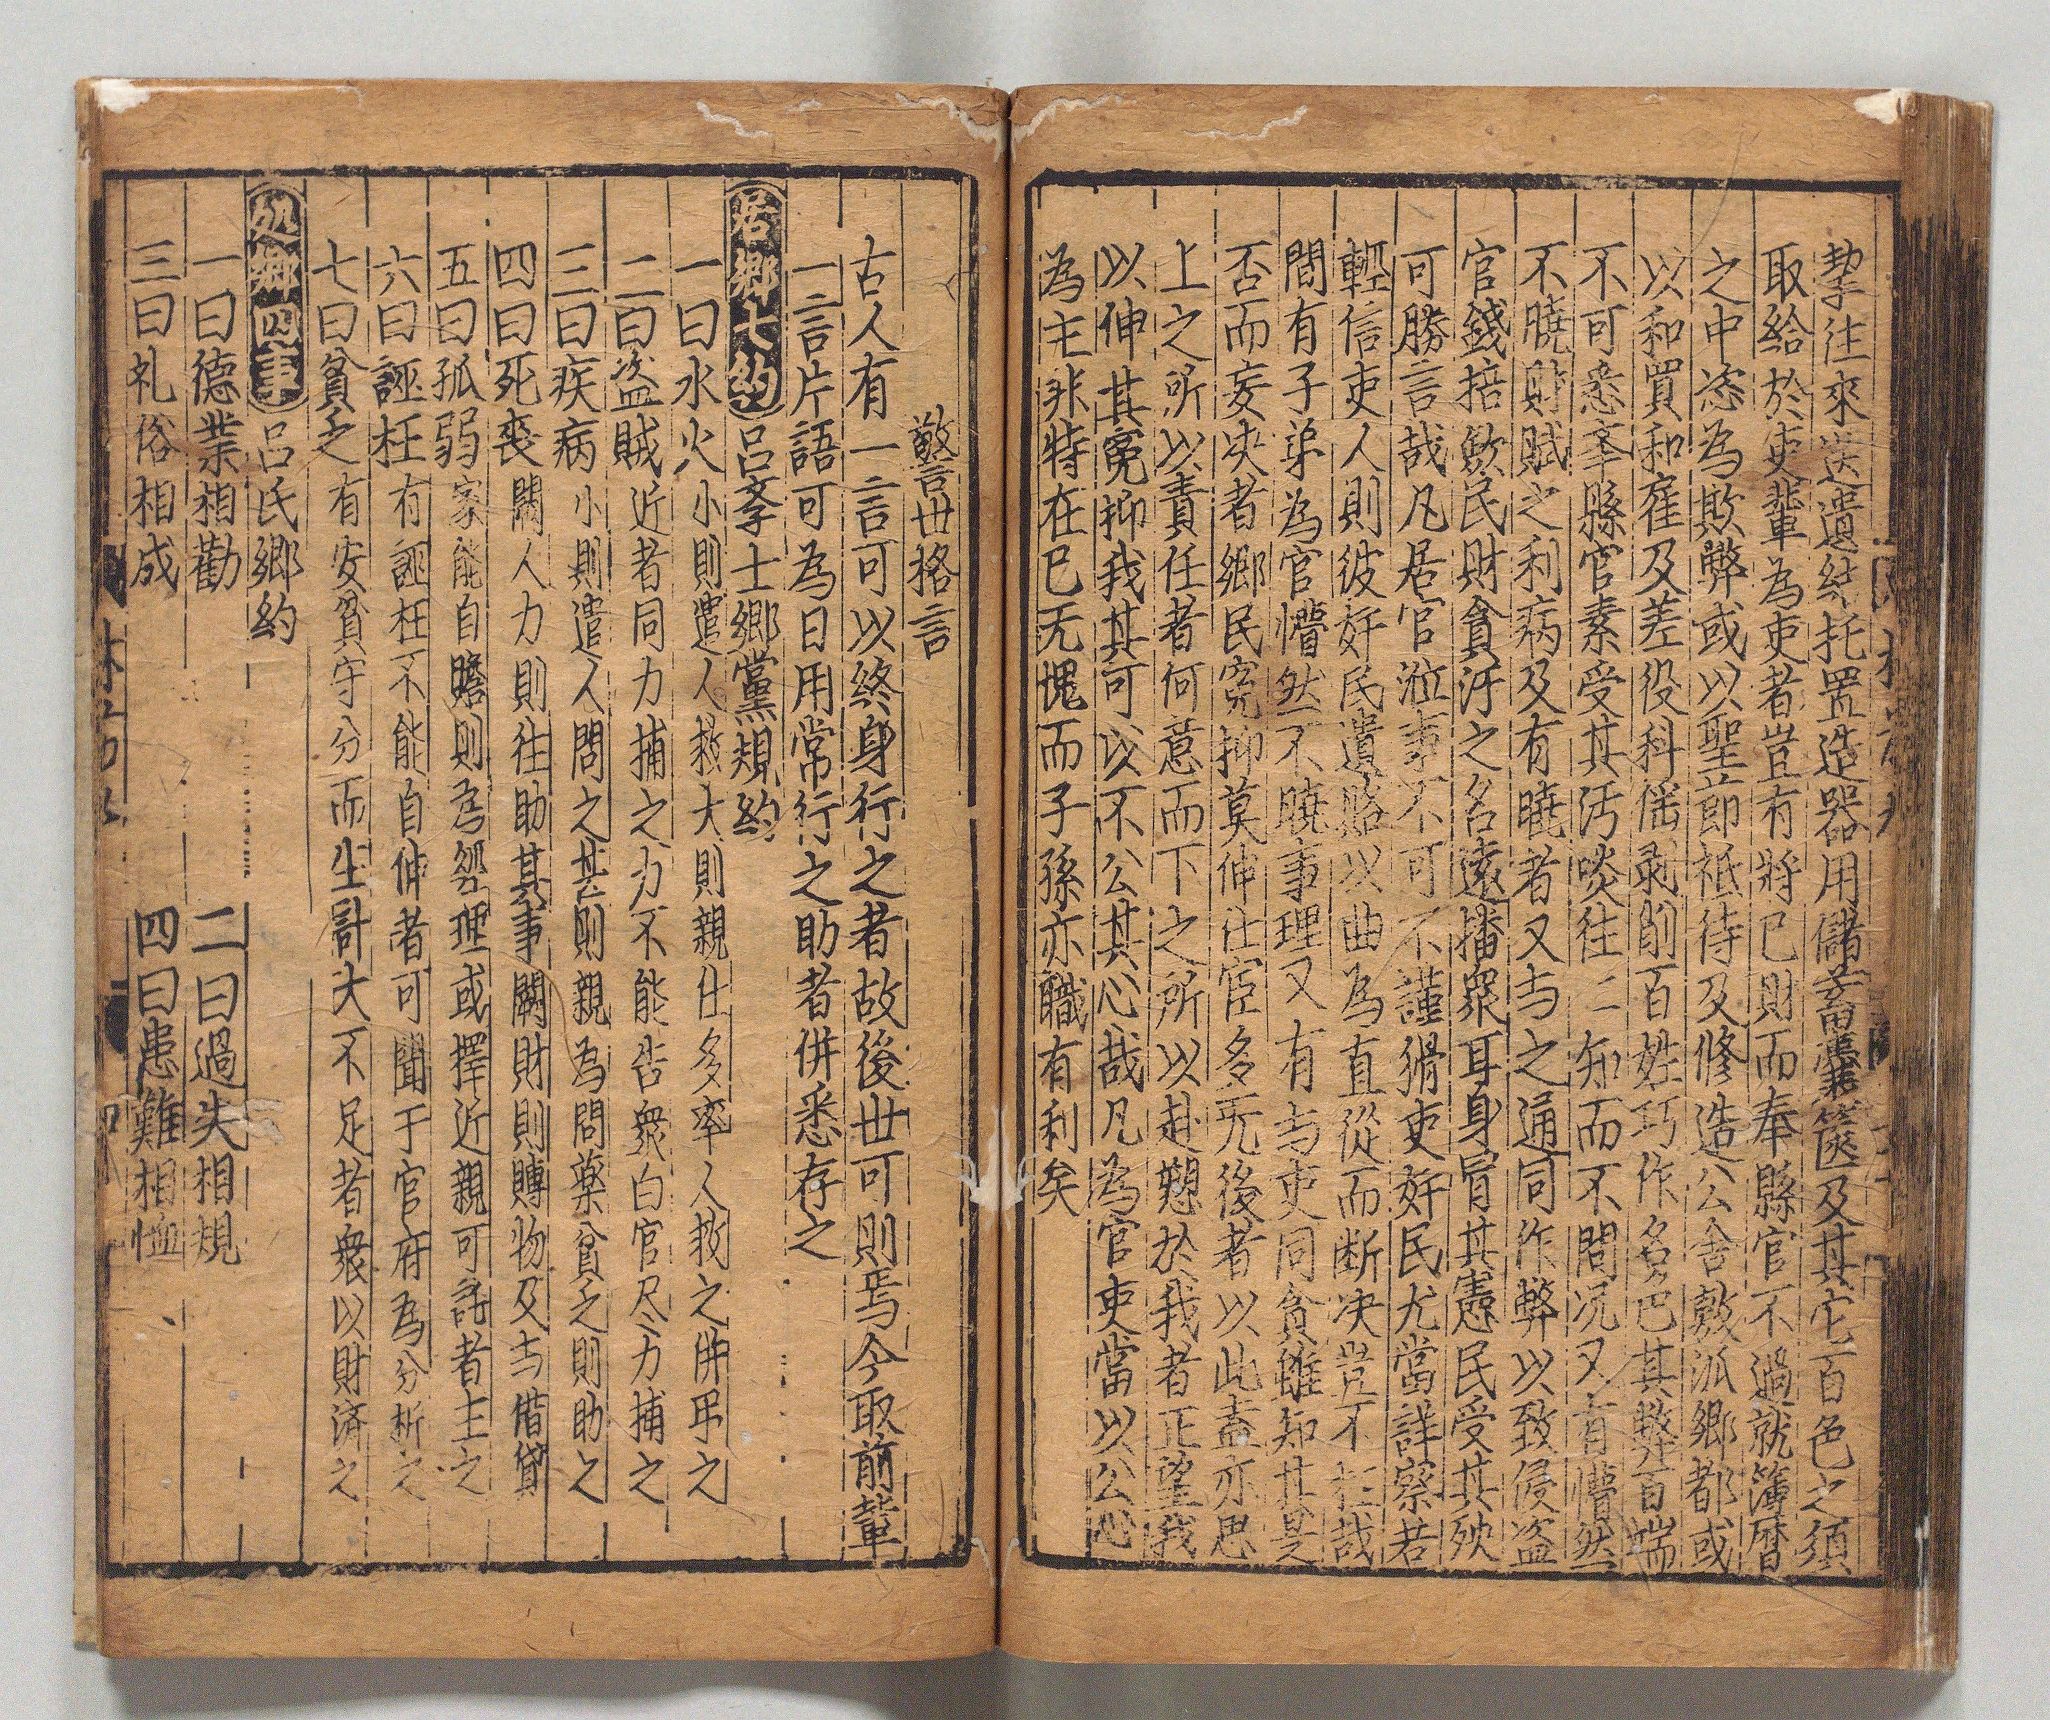 挈往來送遺結托置造器用儲蓄囊篋及其它百色之須
取給於吏輩為吏者豈有將已財而奉縣官不過就簿曆
之中恣為欺弊或以聖節祗待及修造公舍敷派鄉都或
以和買和雇及差役科傜剥削百姓巧作名色其弊百端
不可悉舉縣官素受其汚啖往二知而不問况又有懵然
不曉財賦之利病及有曉者又与之通同作弊以致侵盗
官錢掊歛民財貪汙之名遠播衆耳身冒其憲民受其殃
可勝言哉凡居官涖事不可不謹猾吏奸民尤當詳察若
輕信吏人則彼奸民遺賂以曲為直從而断决豈不枉哉
間有子弟為官懵然不曉事理又有与吏同貪雖知其是
否而妄决者鄉民寃抑莫伸仕宦多无後者以此盍亦思
上之所以責任者何意而下之所以赴愬於我者正望我
以伸其寃抑我其可以不公其心哉凡為官吏當以公心
為主非特在已无愧而子孫亦職有利矣
警世格言
古人有一言可以終身行之者故後世可則焉今取前輩
一言片語可為日用常行之助者併悉存之
居鄉七約 呂李士鄉黨規約
一曰水火 小則遣人救大則親仕多率人救之併弔之
二曰盗賊 近者同力捕之力不能告衆白官尽力捕之
三曰疾病 小則遣人問之甚則親為問藥貧乏則助之
四曰死丧 闕人力則往助其事闕財則賻物及与借貸
五曰孤弱 家能自贍則為䖏理或擇近親可託者主之
六曰誣枉 有誣枉不能自伸者可聞于官府為分析之
七曰貧乏 有安貧守分而生計大不足者衆以財済之
処鄉四事 呂氏鄉約
一曰德業相勸 二曰過失相規
三曰礼俗相成 四曰患難相恤